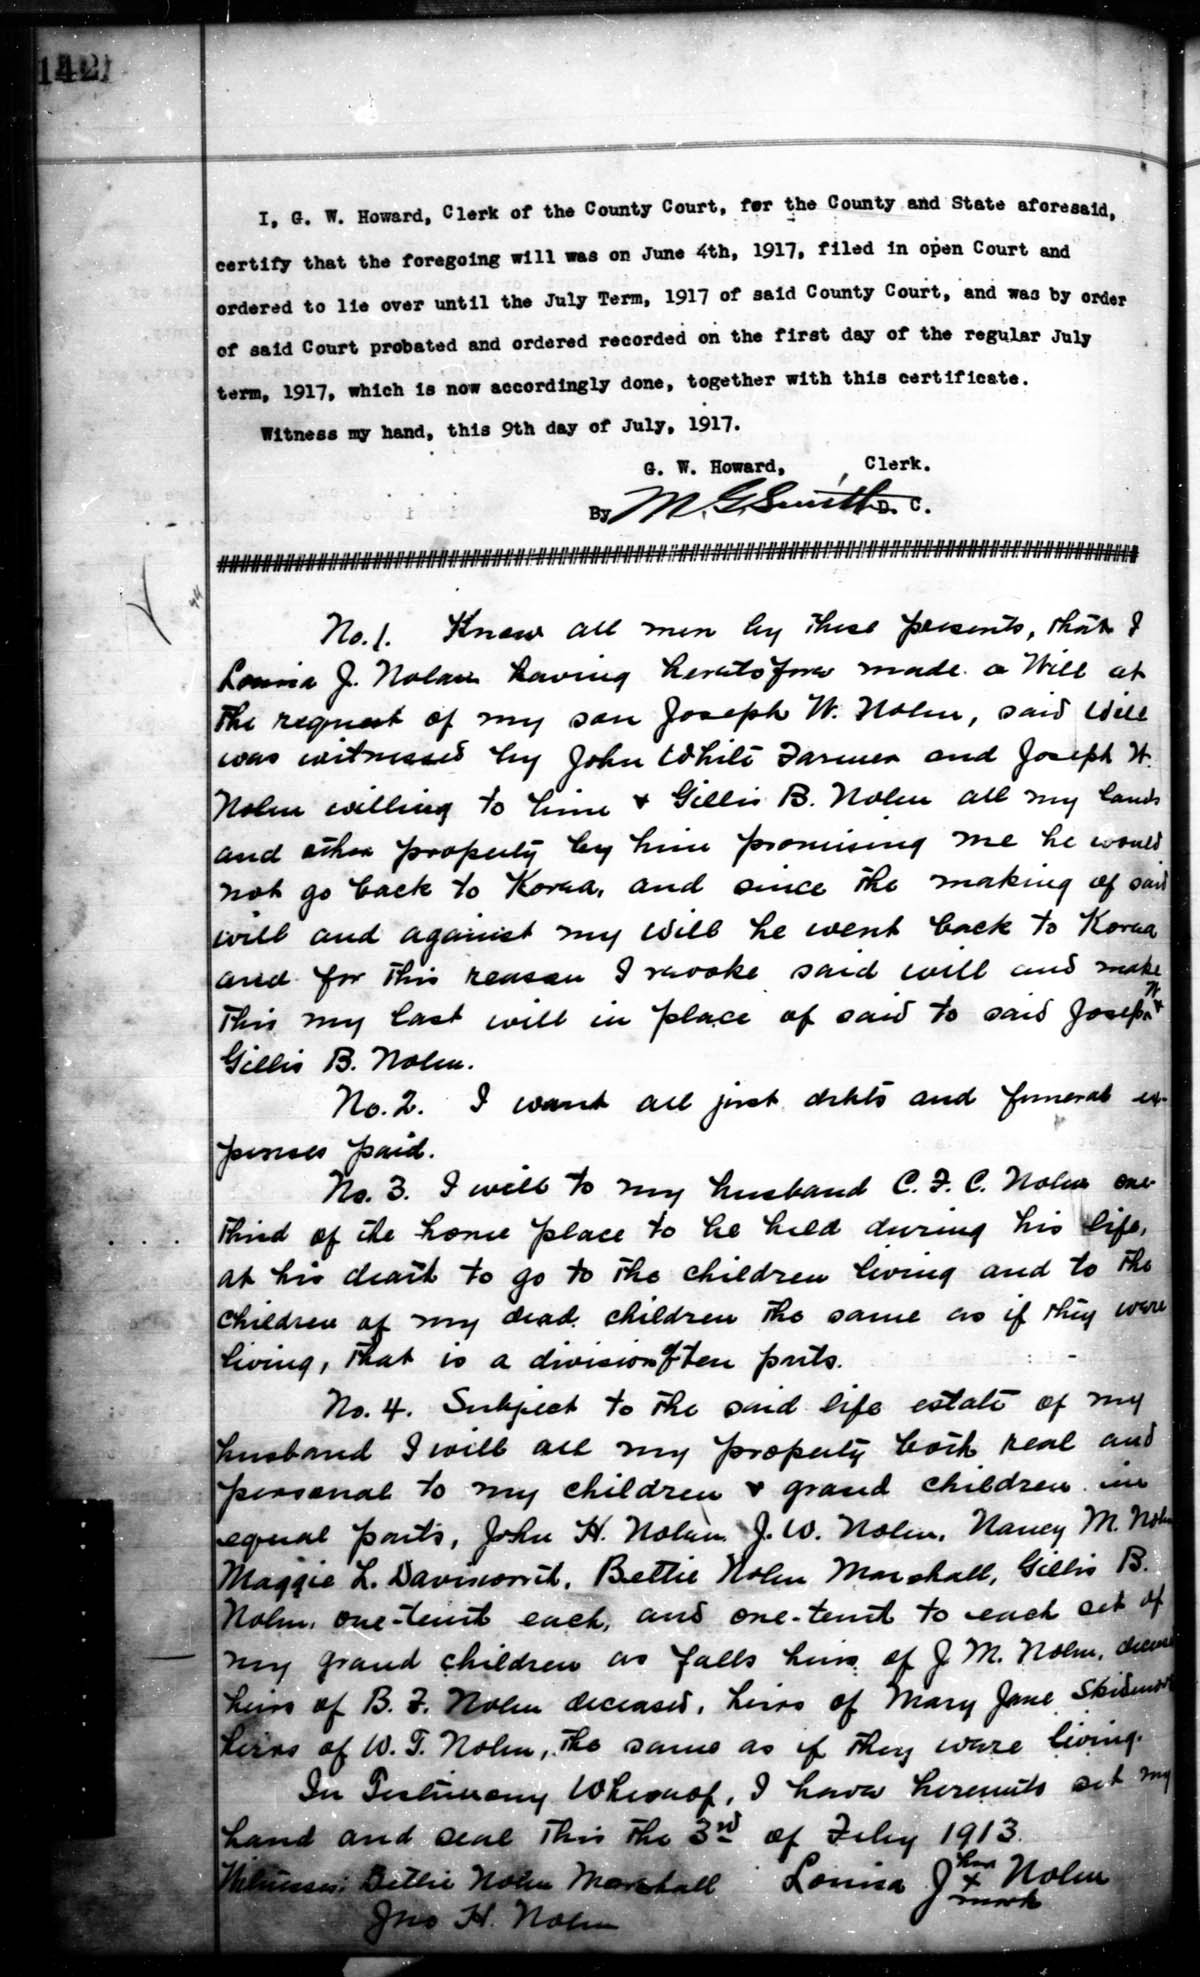 142
I, G. W. Howard, Clerk of the County Court, for the County and State aforesaid,
certify that the foregoing will was on June 4th, 1917, filed in open Court and
ordered to lie over until the July Term, 1917 of said County Court, and was by order
of said Court probated and ordered recorded on the first day of the regular July
term, 1917, which is now accordingly done, together with this certificate.
Witness my hand, this 9th day of July, 1917.
G. W. Howard, Clerk.
By M. G. Smith D. C.
No. 1. Know all men by these presents, that I
Louisa J. Nolen having heretofore made a Will at
the request of my son Joseph W. Nolen, said Will
was witnessed by John White Farmer and Joseph W.
Nolen willing to him & Gillis B. Nolen all my lands
and other property by him promising me he would
not go back to Korea, and since the making of said
will and against my will he went back to Korea
and for this reason I revoke said will and make
this my last will in place of said to said Joseph W &
Gillis B. Nolen.
No. 2. I want all just debts and funeral ex-
penses paid.
No. 3. I will to my husband C. F. C. Nolen one-
third of the home place to be held during his life,
at his death to go to the children living and to the
children of my dead children the same as if they were
living, that is a division of ten parts.
No. 4. Subject to the said life estate of my
husband I will all my property both real and
personal to my children & grand children in
equal parts, John H. Nolen, J. W. Nolen, Nancy M. Nolen
Maggie L. Davisworth, Bettie Nolen Marshall, Gillis B.
Nolen, one-tenth each, and one-tenth to each set of
my grand children as falls heirs of J M. Nolen, deceased
heirs of B. F. Nolen deceased, heirs of Mary Jane Skidmore
heirs of W. T. Nolen, the same as if they were living.
In Testimony Whereof, I have hereunto set my
hand and seal this the 3rd of Feby 1913.
Witnesses: Bettie Nolen Marshall Louisa J her x mark Nolen
Jno H. Nolen